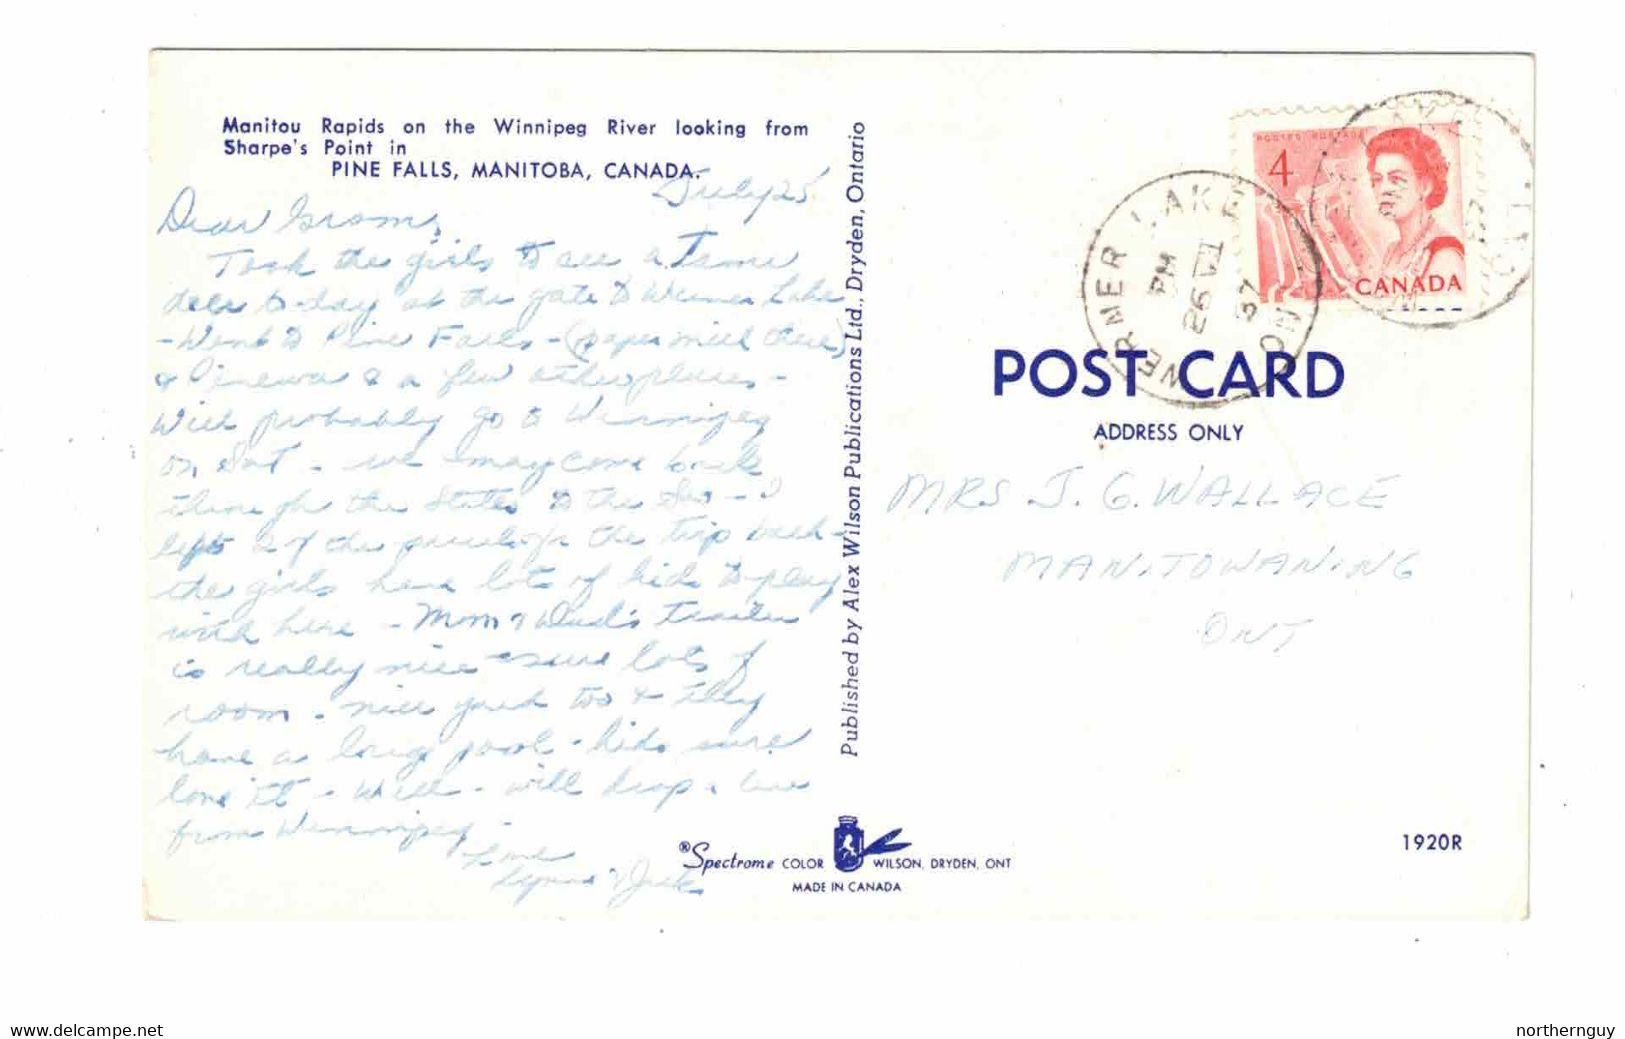 Manitou Rapids on the Winnipeg River looking from
Sharpe's Point in
PINE FALLS, MANITOBA, CANADA.
July 25
Dear Gram,
Took the girls to see a Tame
deer to-day at the gate to Werner Lake
- Went to Pine Falls - (paper mill there)
& Pinewa & a few other places -
Will probably go to Winnipeg
on Sat - we may come back
through the States to the Soo - I
left 2 of the for the trip back -
the girls have lots of kids to play
with here - Mom & Dad's Trailer
is really nice - sure lots of
room - nice yard too & They
have a long pool - kids sure
love it - Well - will drop a line
from Winnipeg -
Love
Lynne & Jack
Published by Alex Wilson Publications Ltd., Dryden, Ontario
®Spectrome COLOR WILSON, DRYDEN, ONT
MADE IN CANADA
POSTES POSTAGE
4
CANADA
WERNER LAKE
PM
26 VII
67
ONT
POST CARD
ADDRESS ONLY
MRS J. G. WALLACE
MANITOWANING
ONT
1920R
www.delcampe.net
northernguy